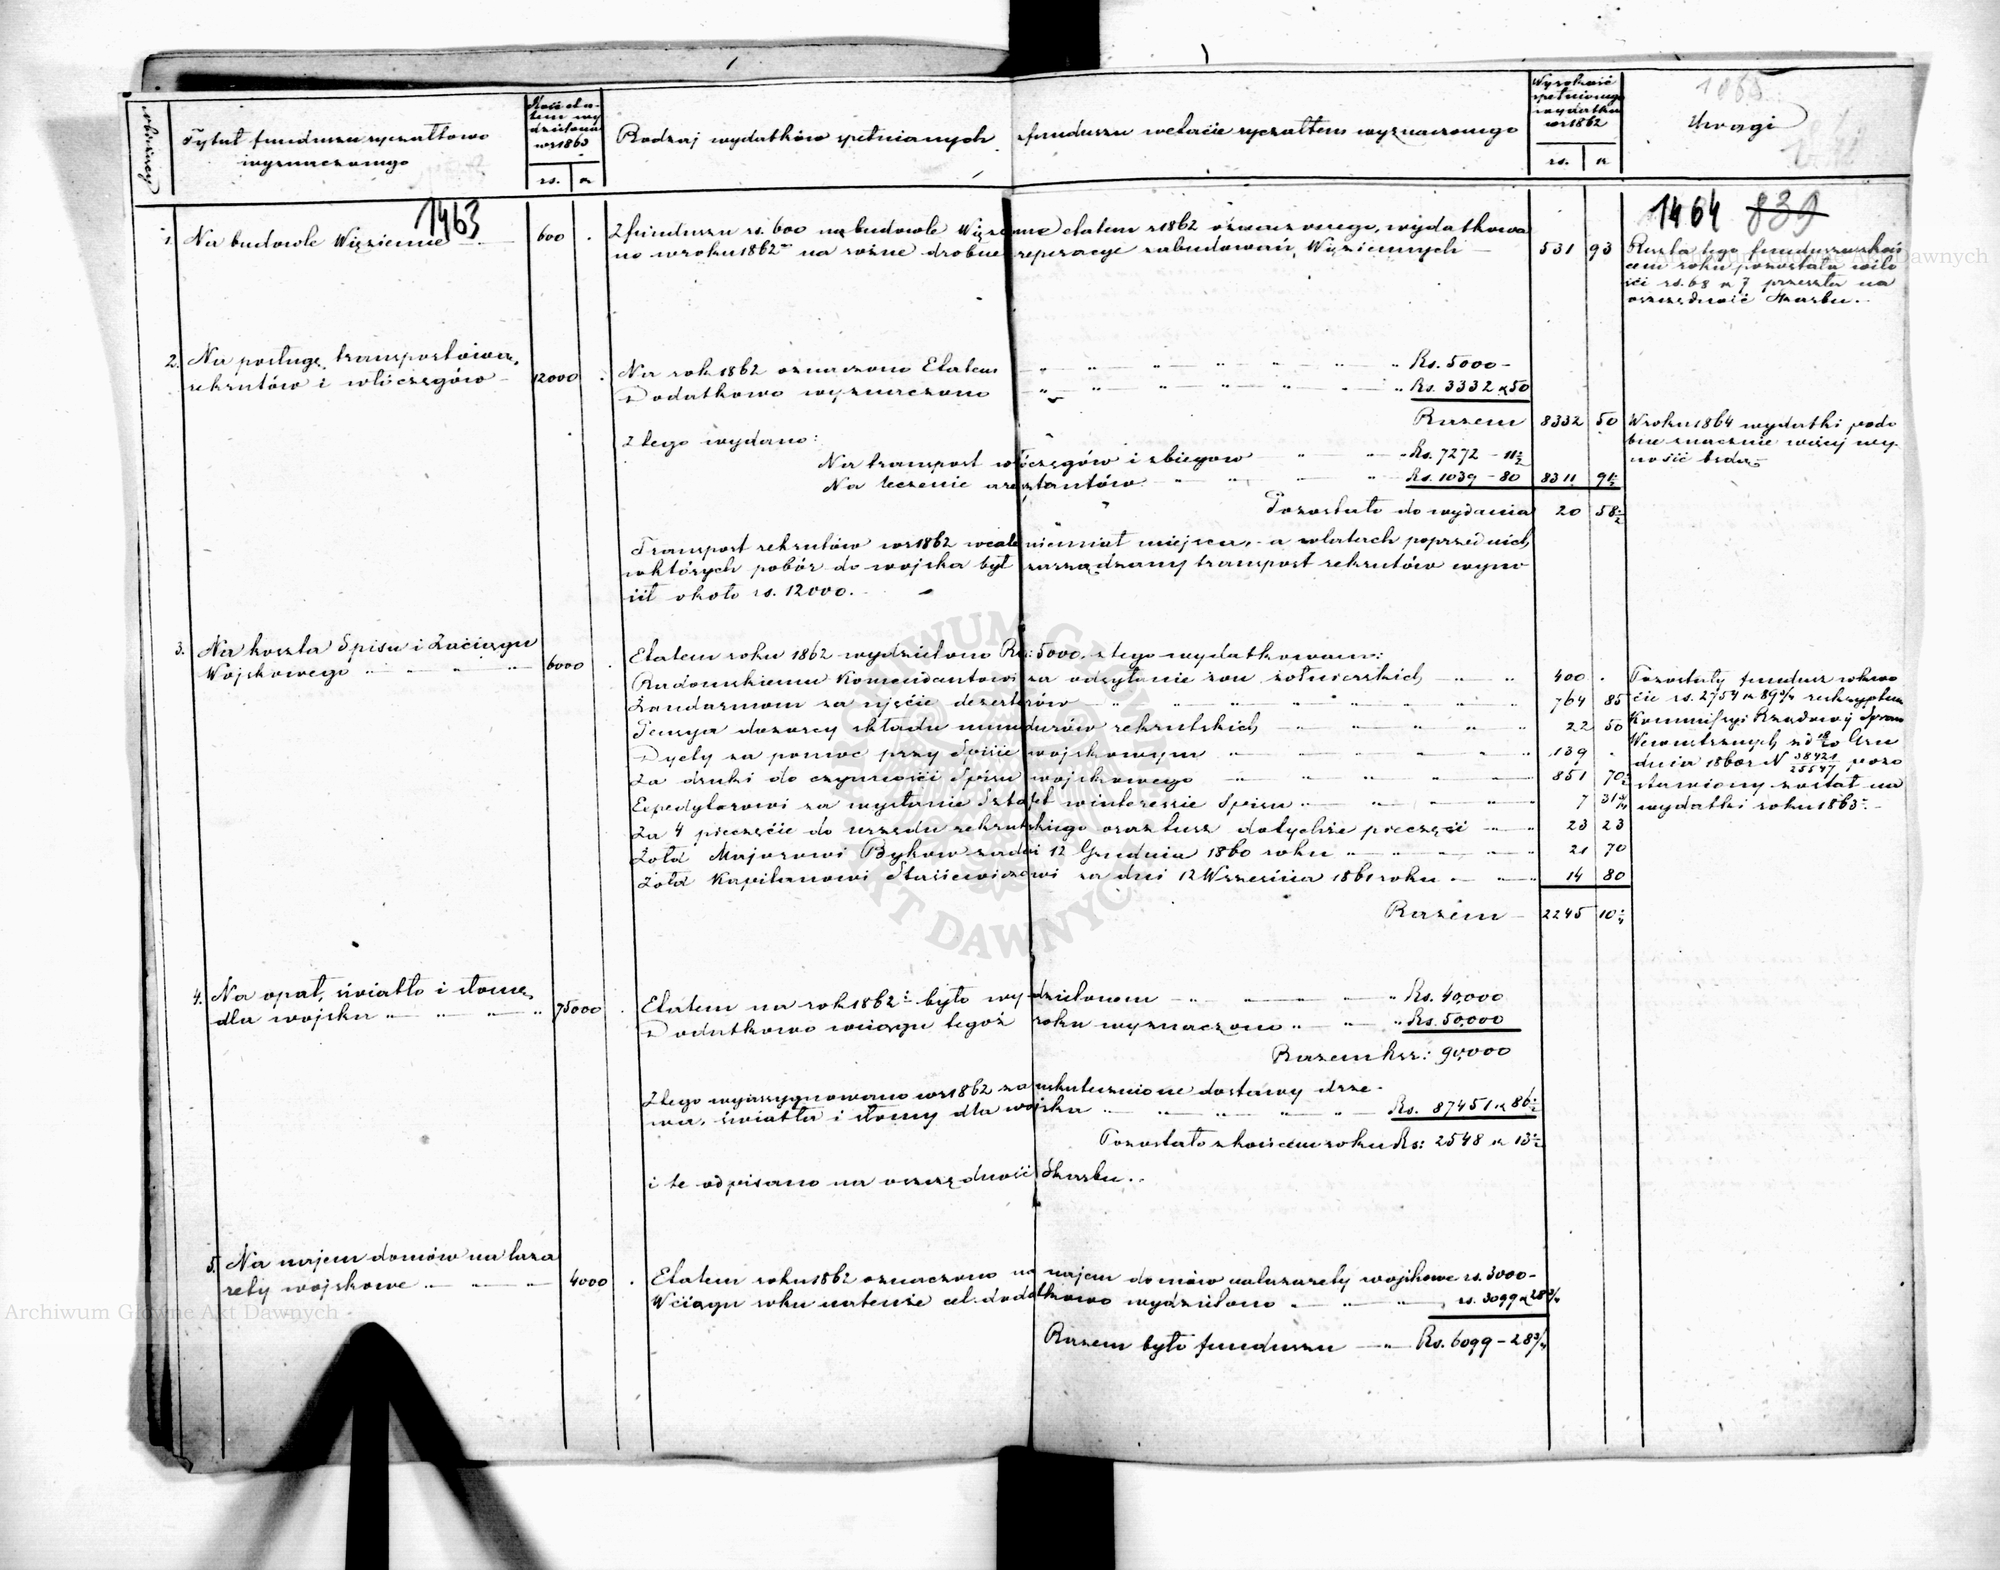 Tytuł funduszu ryczałtowo
wyznaczonego
Ilość eta-
tem wy
dzielona
w r 1863
rs. k
Rodzaj wydatków spełnianych z funduszu w etacie ryczałtem wyznaczonego
Wysokość
spełnionego
wydatku
w r 1862
rs. k
Uwagi
1463
1464 839
1. Na budowle Więzienne 600
Z funduszu rs. 600 na budowle Więzienne etatem z 1862 oznaczonego, wydatkowa
no w roku 1862 na różne drobne reperacye zabudowań Więziennych 531 93
Reszta tego funduszu z koń
cem roku pozostała w ilo
ści rs. 68 k 7 przeszła na
oszczędność Skarbu.
2. Na posługę transportową,
rekrutów i włóczęgów 12000
Na rok 1862 oznaczono Etatem Rs. 5000 -
Dodatkowo wyznaczono Rs. 3332 k 50
Razem 8332 50
Z tego wydano:
Na transport włóczęgów i zbiegów Rs. 7272 - 11½
Na leczenie aresztantów Rs. 1039 - 80 8311 91½
Pozostało do wydania 20 58½
W roku 1864 wydatki podo
bne znacznie więcej wy-
nosić będą
Transport rekrutów w r 1862 wcale niemiał miejsca, a w latach poprzednich
w których pobór do wojska był zarządzany transport rekrutów wyno
sił około rs. 12000.
3. Na koszta Spisu i Zaciągu
Wojskowego 6000
Etatem roku 1862 wydzielono Rs: 5000, z tego wydatkowano:
Radomskiemu Komendantowi za odsyłanie żon żołnierskich 400
Żandarmom za ujęcie dezerterów 764 85
Pensya dozorcy składu mundurów rekrutskich 22 50
Dyety za pomoc przy Spisie wojskowym 139
Za druki do czynności Spisu wojskowego 851 70½
Expedytorowi za wysłanie Sztafet w interessie Spisu 7 31¾
Za 4 pieczęcie do urzędu rekrutskiego oraz tusz do tychże pieczęci 23 23
Żołd Majorowi Bykow za dni 12 Grudnia 1860 roku 21 70
Żołd Kapitanowi Stasiewiczowi za dni 12 Września 1861 roku 14 80
Razem 2245 10¼
Pozostały fundusz w kwo
cie rs. 2754 k 89¾ reskryptem
Kommissyi Rządowej Spraw
Wewnętrznych z d 18/30 Gru
dnia 1862 r N 38421/25547 pozo
stawiony został na
wydatki roku 1863.
4. Na opał, światło i słomę,
dla wojska 75000
Etatem na rok 1862 było wydzielonem Rs. 40,000
Dodatkowo w ciągu tegoż roku wyznaczono Rs. 50,000
Razem Rsr: 90,000
Z tego wyassygnowano w r 1862 za uskutecznione dostawy drze-
wa, światła i słomy dla wojska Rs. 87451 k 86½
Pozostało z końcem roku Rs: 2548 k 13½
i te odpisano na oszczędność Skarbu.
5. Na najem domów na laza
rety wojskowe 4000
Etatem roku 1862 oznaczono na najem domów na lazarety wojskowe rs. 3000 -
W ciągu roku na tenże cel dodatkowo wydzielono rs. 3099 k 28¾
Razem było funduszu Rs. 6099 - 28¾
Archiwum Główne Akt Dawnych
Archiwum Główne Akt Dawnych